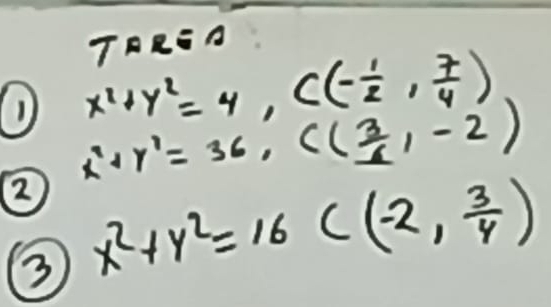 TAREA
① x²+y²= 4, C(-1/2, 7/4)
② x²+y²= 36, C(3/6, -2)
③ x²+y²= 16 C(-2, 3/4)